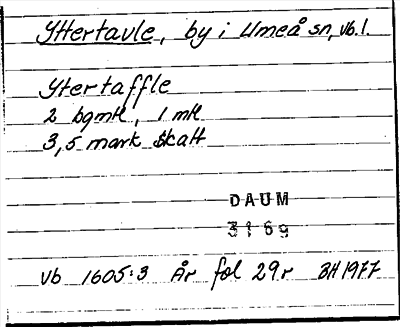 Yttertavle, by i Umeå sn, Vb. l.
Ytertaffle
2 bgmk, 1 mk
3,5 mark skatt
DAUM
3169
Vb 1605:3 År fol 29r BH 1977